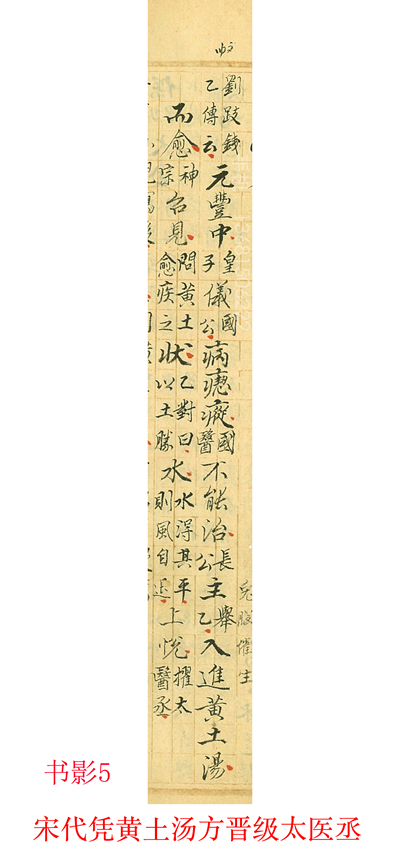 劉跂錢乙傳云元豐中皇子儀國公病瘛瘲國醫不能治長公主舉乙入進黃土湯
而愈神宗召見問黃土愈疾之狀乙對曰以土勝水水得其平則風自退上悅擢太醫丞
兔腦催生
书影5
宋代凭黄土汤方晋级太医丞